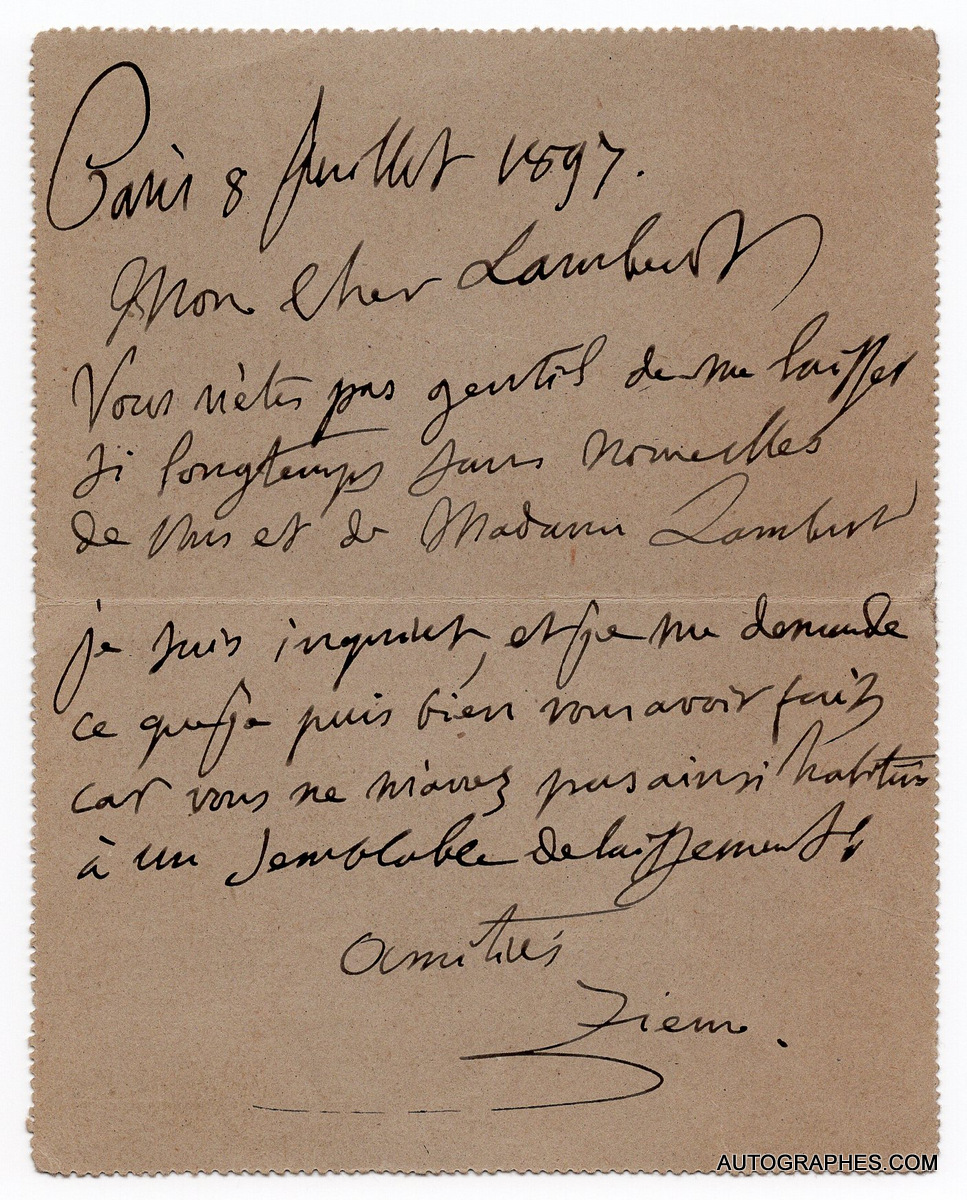 Paris 8 Juillet 1897.
Mon Cher Lambert
Vous n'êtes pas gentil de me laisser
si longtemps sans nouvelles
de vous et de Madame Lambert
je suis inquiet, et je me demande
ce que je puis bien vous avoir fait
car vous ne m'avez pas ainsi habitué
à un semblable delaissement!
Amitiés
Ziem.
AUTOGRAPHES.COM